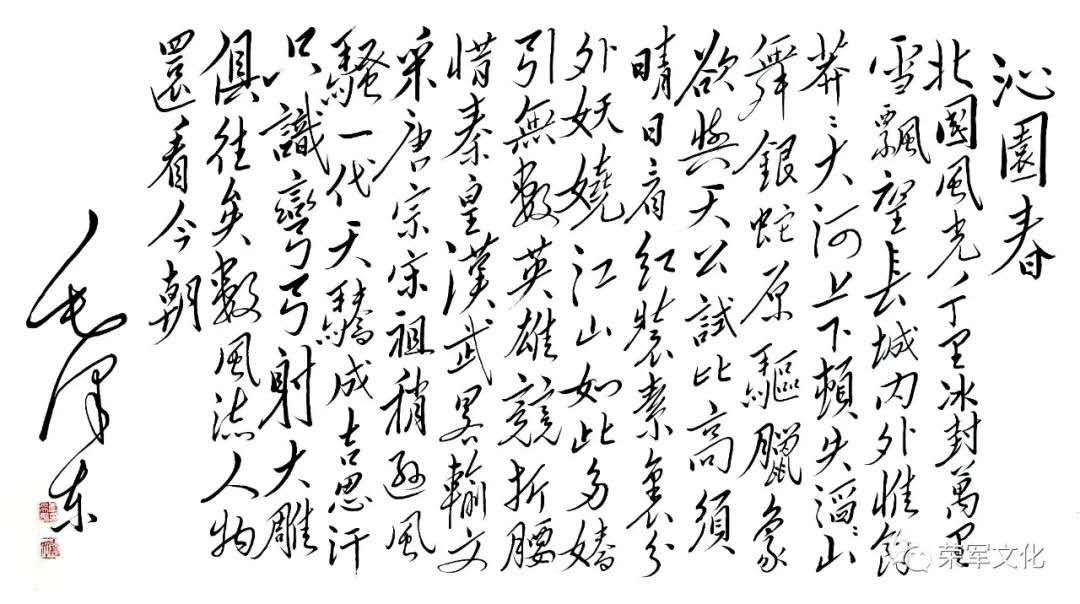 沁園春
北國風光千里冰封萬里
雪飄望長城内外惟餘
莽〻大河上下頓失滔〻山
舞銀蛇原驅臘象
欲與天公試比高須
晴日看紅裝素裹分
外妖嬈江山如此多嬌
引無數英雄競折腰
惜秦皇漢武畧輸文
采唐宗宋祖稍遜風
騷一代天驕成吉思汗
只識彎弓射大雕
俱往矣數風流人物
還看今朝
毛澤东
荣军文化